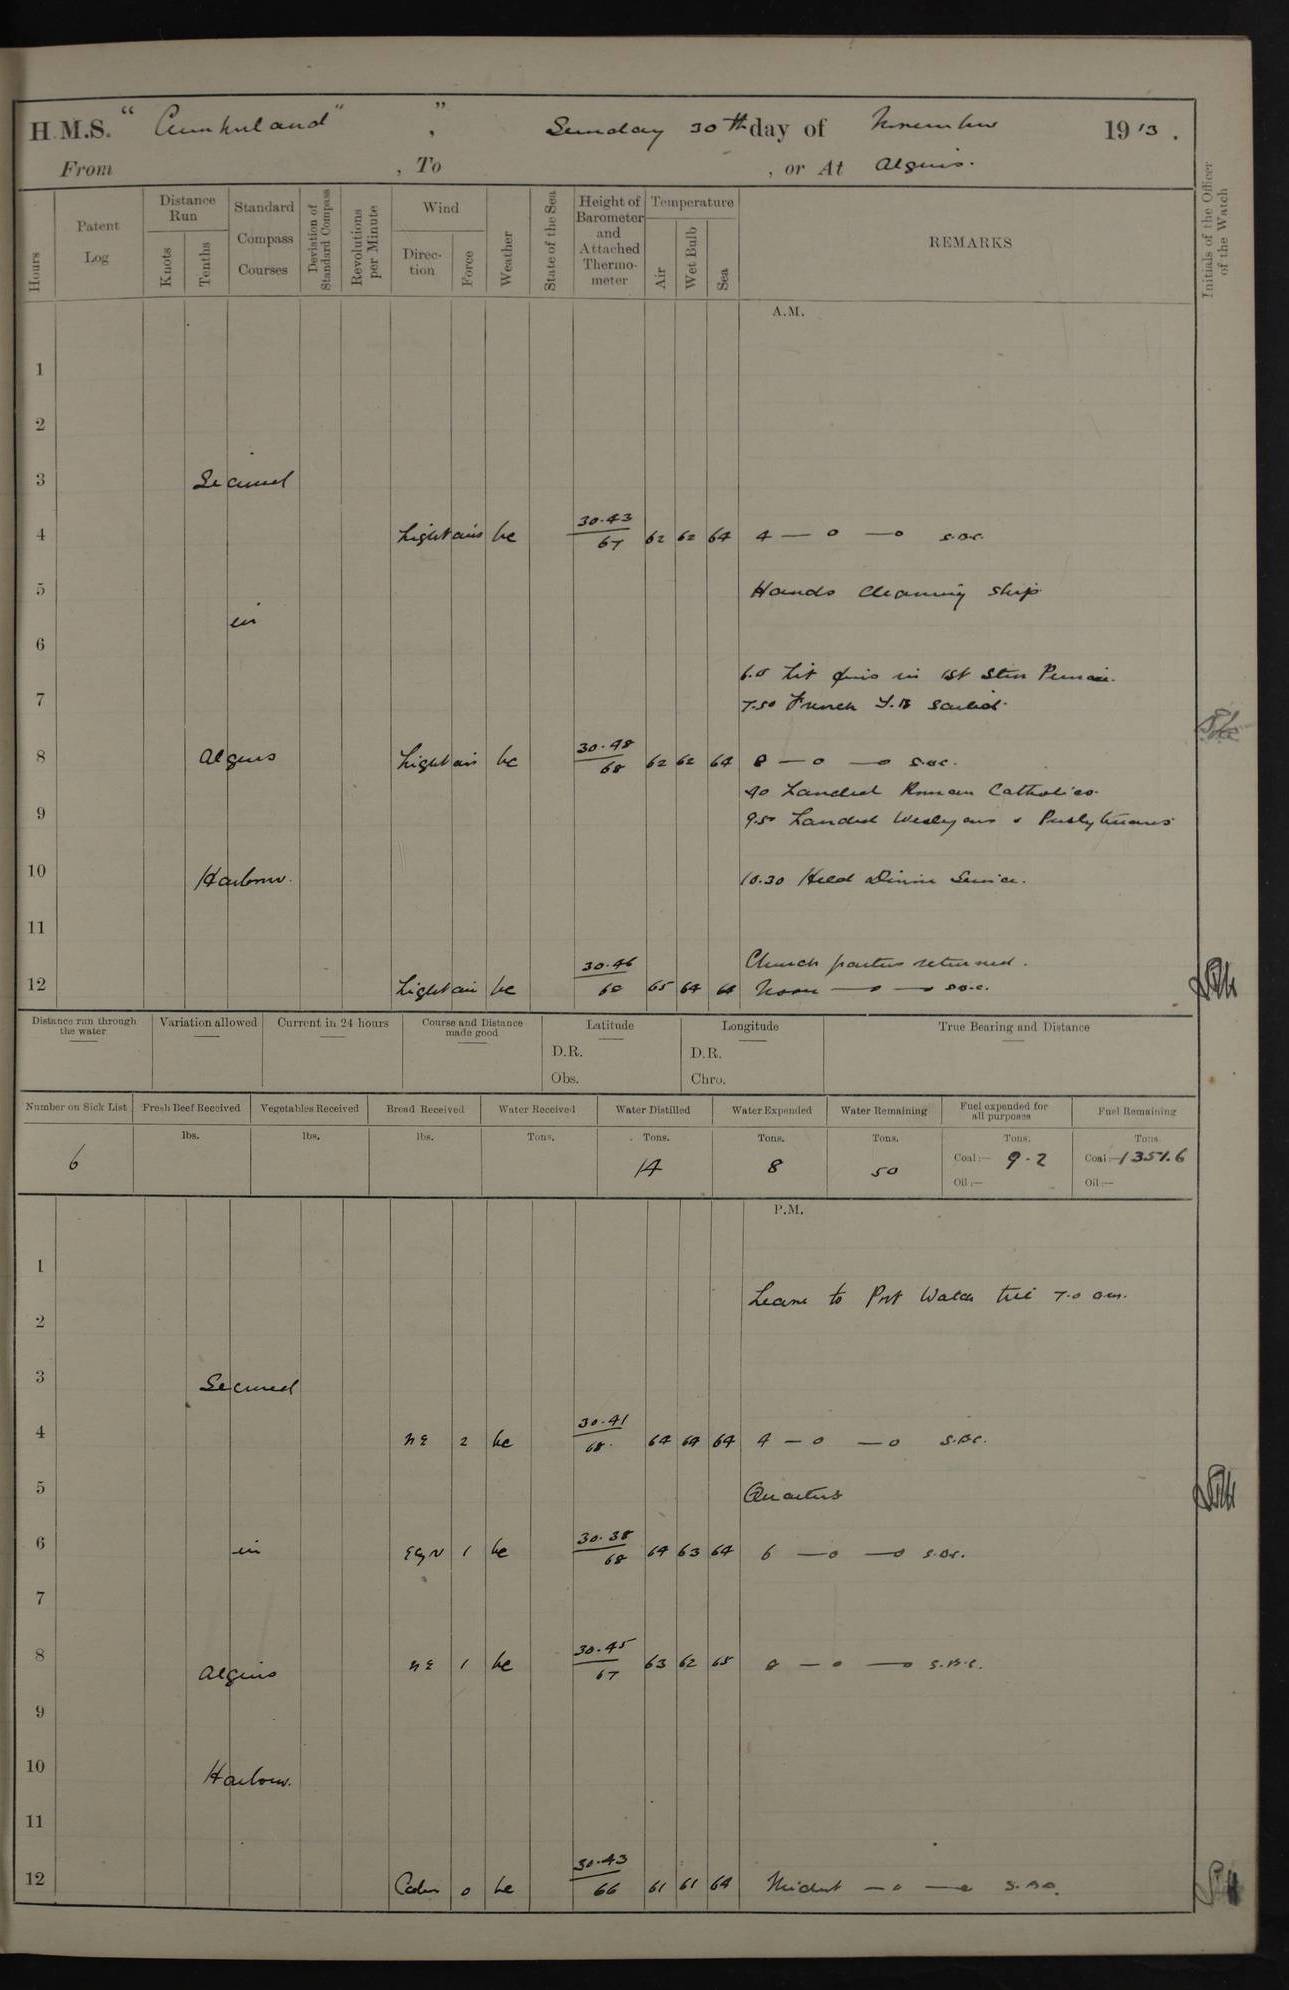 H.M.S. "Cumberland" , Sunday 30th day of November 1913.
From , To , or At Algiers.
Hours
Patent Log
Distance Run
Knots
Tenths
Standard Compass Courses
Deviation of Standard Compass
Revolutions per Minute
Wind
Direction
Force
Weather
State of the Sea
Height of Barometer and Attached Thermometer
Temperature
Air
Wet Bulb
Sea
REMARKS
Initials of the Officer of the Watch
A.M.
1
2
3 Secured
4 Light airs bc 30.43 67 62 62 64 4 — o — o S.B.C.
5 Hands cleaning ship
in
6
6.0 Lit fires in 1st Stm Pinnace.
7 7.50 French T.B sailed.
8 Algiers Light airs bc 30.48 68 62 62 64 8 — o — o S.B.C.
9.0 Landed Roman Catholics.
9 9.50 Landed Wesleyans & Presbyterians
10 Harbour. 10.30 Held Divine Service.
11
Church parties returned.
12 Light airs bc 30.46 68 65 64 Noon — o — o S.B.C.
Distance run through the water
Variation allowed
Current in 24 hours
Course and Distance made good
Latitude
D.R.
Obs.
Longitude
D.R.
Chro.
True Bearing and Distance
Number on Sick List
Fresh Beef Received
Vegetables Received
Bread Received
Water Received
Water Distilled
Water Expended
Water Remaining
Fuel expended for all purposes
Fuel Remaining
lbs. lbs. lbs. Tons. Tons. Tons. Tons. Tons. Tons
6 14 8 50 Coal:— 9.2 Coal:— 1351.6
Oil:— Oil:—
P.M.
1
Leave to Port Watch till 7.0 am.
2
3 Secured
4 NE 2 bc 30.41 68 64 64 64 4 — o — o S.B.C.
5 Quarters
6 in EbyN 1 bc 30.38 68 64 63 64 6 — o — o S.B.C.
7
8 Algiers NE 1 bc 30.45 67 63 62 65 8 — o — o S.B.C.
9
10 Harbour.
11
12 Calm 0 bc 30.43 66 61 61 64 Midnt — o — o S.B.C.